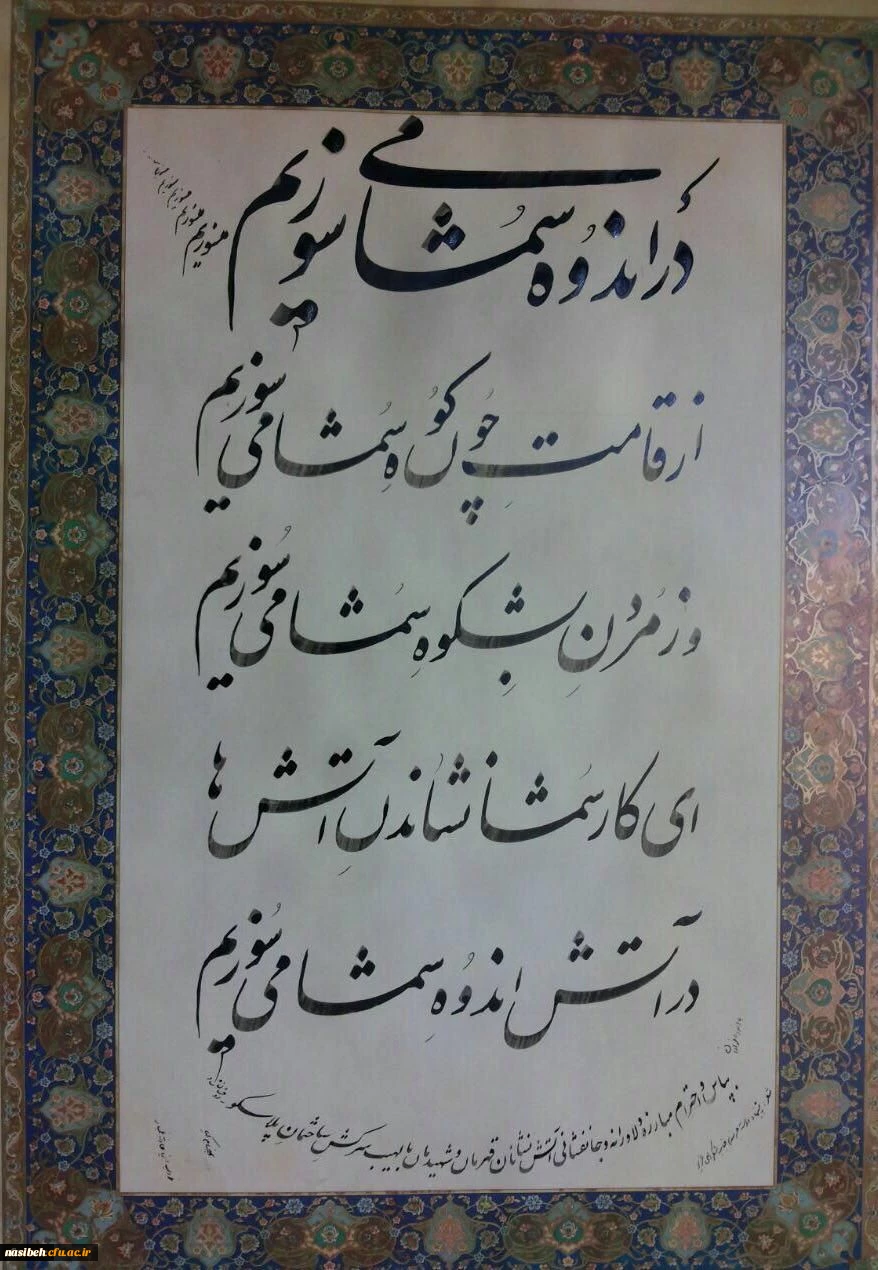 در اندوه شما می سوزیم
می سوزیم
از قامتِ چون کوهِ شما می سوزیم
وز مُردنِ بشکوهِ شما می سوزیم
ای کار شما نشاندنِ آتش ها
در آتش اندوهِ شما می سوزیم
بپاس و احترام مبارزه دلاورانه و جانفشانی آتش نشانان قهرمان و شهیدمان با لهیب سرکش ساختمان پلاسکو
nasibeh.cfu.ac.ir